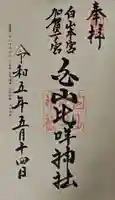 奉拝
白山本宮
加賀一ノ宮
白山比咩神社
令和五年五月十四日